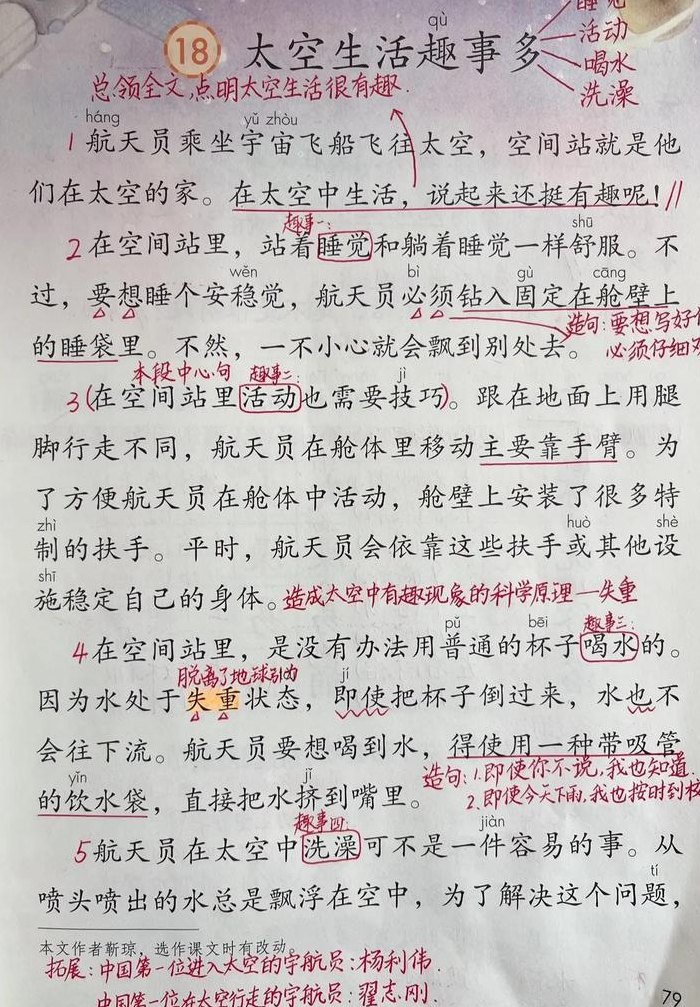 睡觉
qù
18 太空生活趣事多
活动
喝水
洗澡
总领全文,点明太空生活很有趣.
háng yǔ zhòu
1 航天员乘坐宇宙飞船飞往太空，空间站就是他
们在太空的家。在太空中生活，说起来还挺有趣呢！//
趣事一: shū
2 在空间站里，站着睡觉和躺着睡觉一样舒服。不
wěn bì gù cāng
过，要想睡个安稳觉，航天员必须钻入固定在舱壁上
造句:要想写好
的睡袋里。不然，一不小心就会飘到别处去。
必须仔细
本段中心句 趣事二: jì
3(在空间站里活动也需要技巧)。跟在地面上用腿
脚行走不同，航天员在舱体里移动主要靠手臂。为
了方便航天员在舱体中活动，舱壁上安装了很多特
zhì huò shè
制的扶手。平时，航天员会依靠这些扶手或其他设
shī
施稳定自己的身体。造成太空中有趣现象的科学原理—失重
pǔ bēi 趣事三:
4 在空间站里，是没有办法用普通的杯子喝水的。
脱离了地球引力 jí
因为水处于失重状态，即使把杯子倒过来，水也不
会往下流。航天员要想喝到水，得使用一种带吸管
yǐn jǐ 造句:1.即使你不说,我也知道.
的饮水袋，直接把水挤到嘴里。
2.即使今天下雨,我也按时到校
趣事四: jiàn
5 航天员在太空中洗澡可不是一件容易的事。从
tí
喷头喷出的水总是飘浮在空中，为了解决这个问题，
本文作者靳琼，选作课文时有改动。
拓展:中国第一位进入太空的宇航员:杨利伟.
中国第一位在太空行走的宇航员:翟志刚.
79